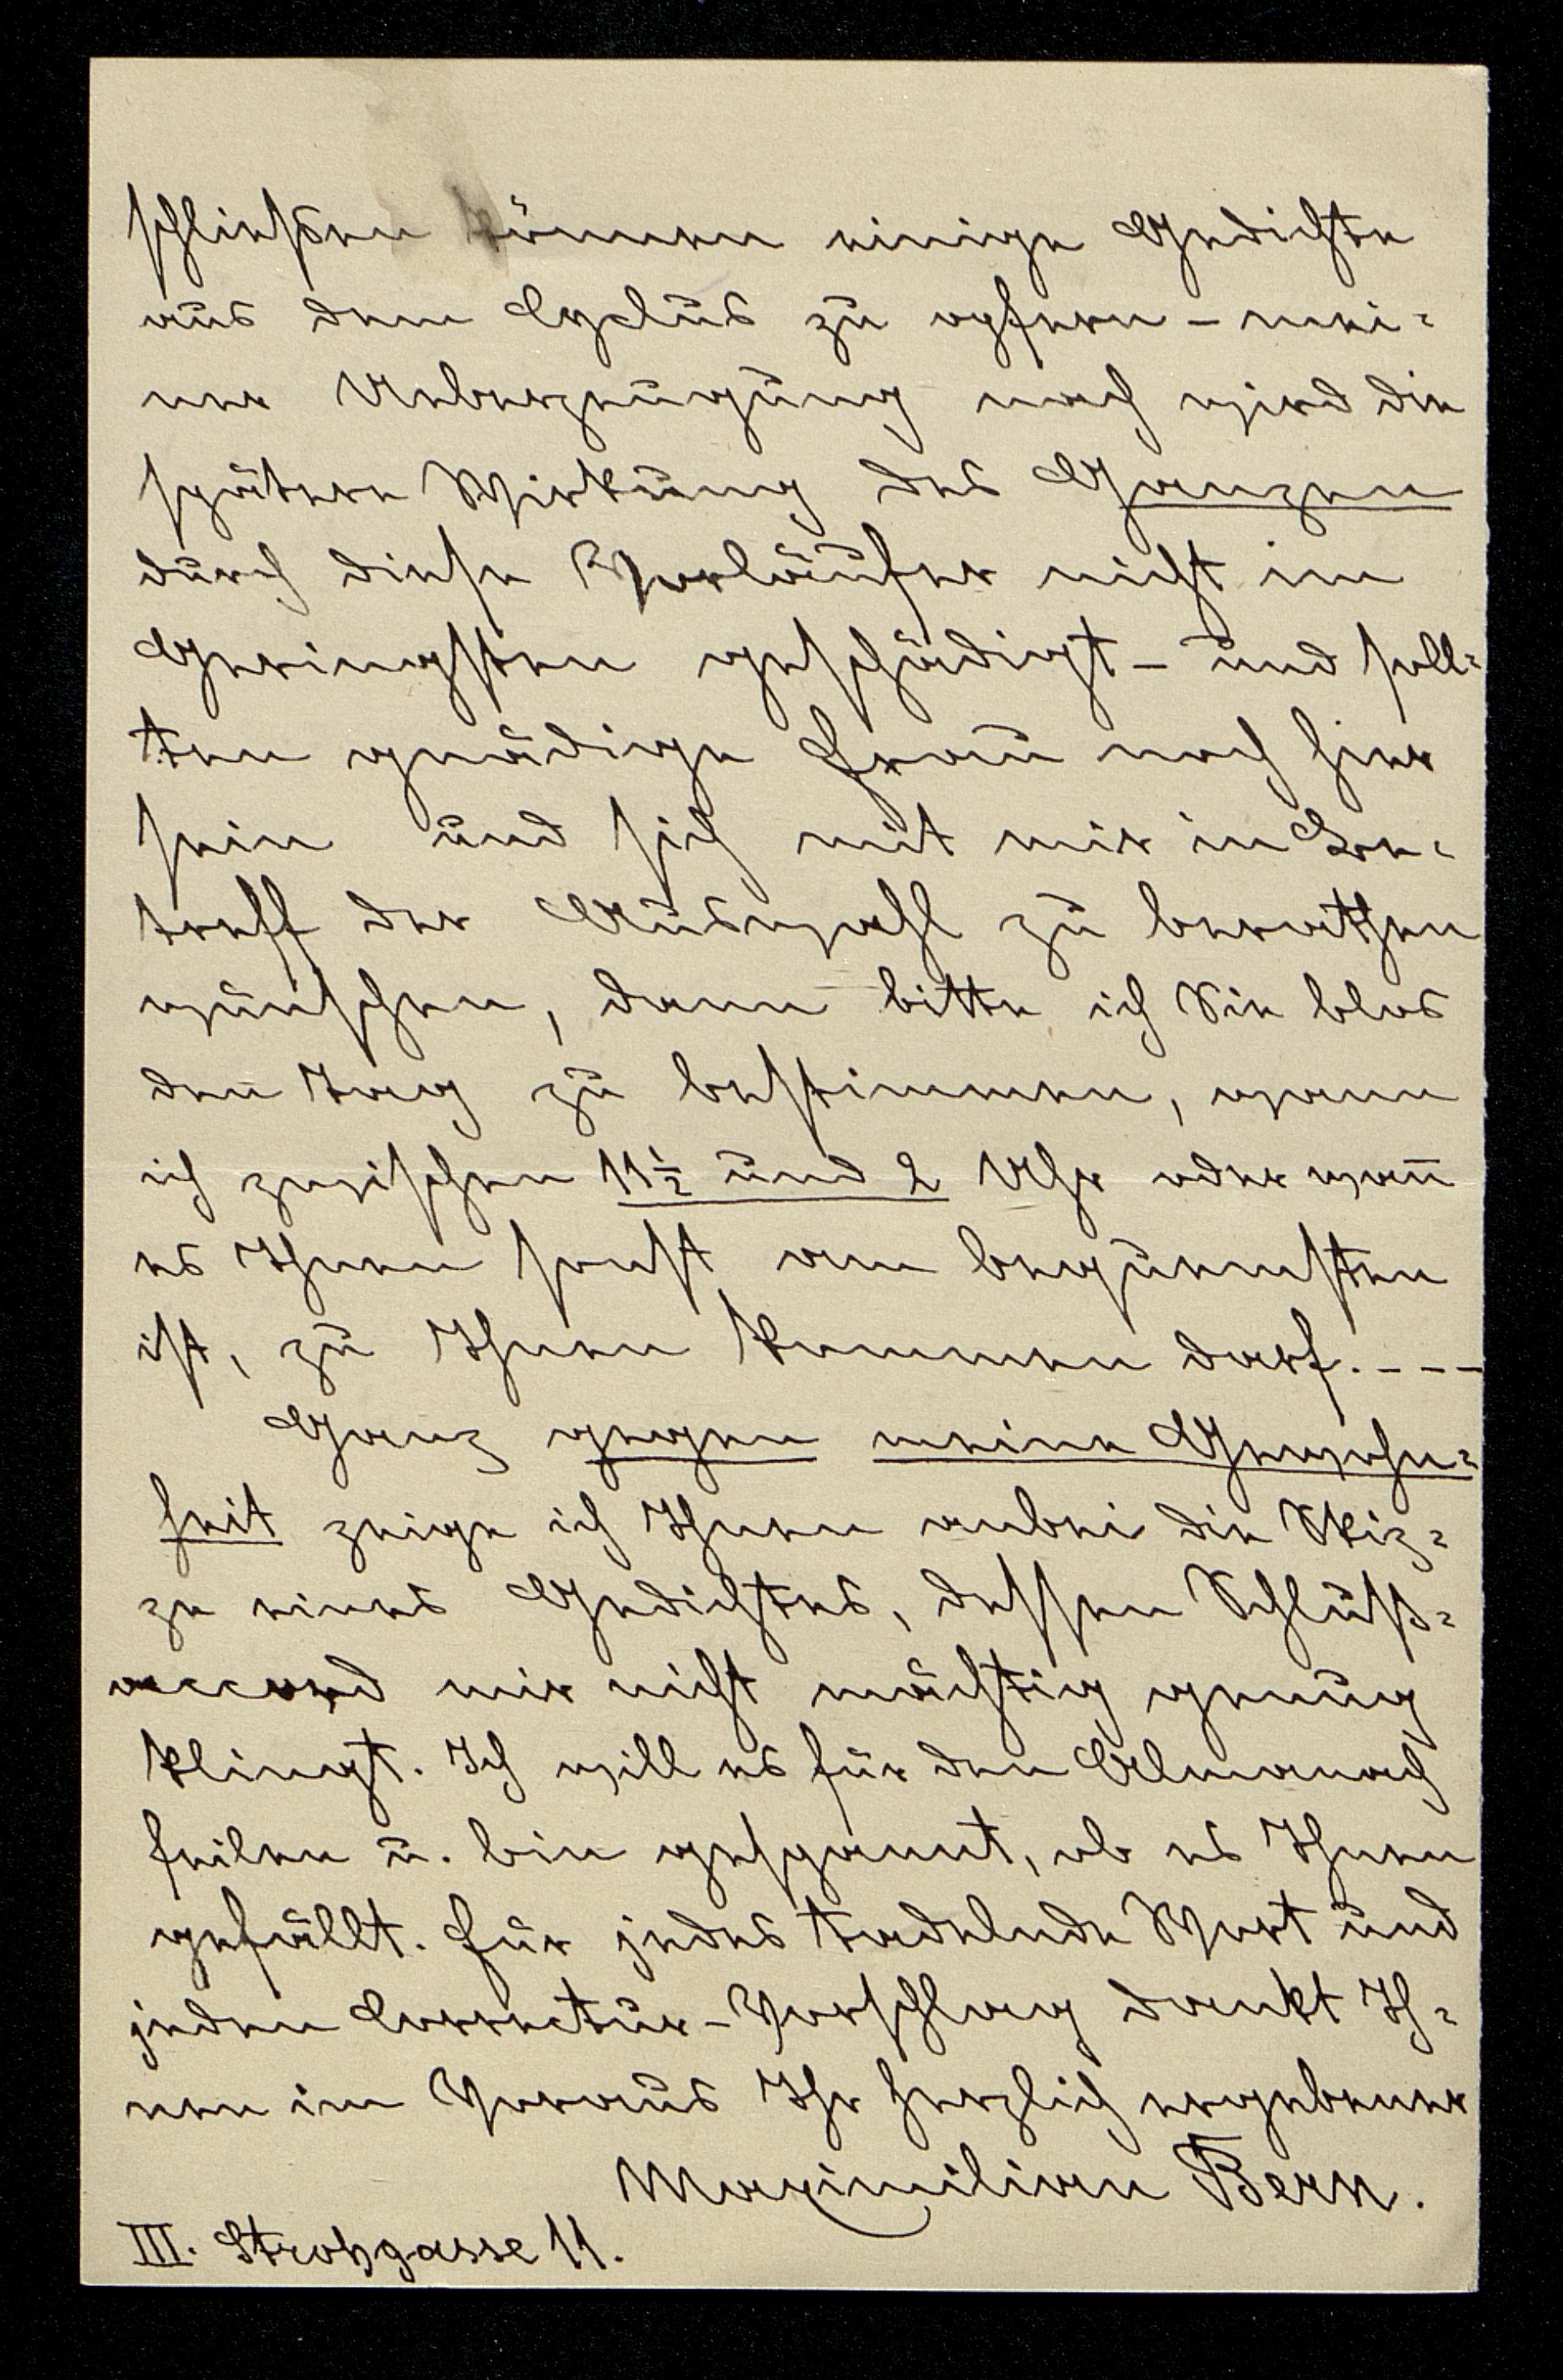 schließen können einige Gedichte
aus dem Cyclus zu opfern – mei-
ner Ueberzeugung nach wird die
spätere Wirkung des Ganzen
durch diese Vorläufer nicht im
Geringsten geschädigt – und soll-
ten gnädige Frau noch hier
sein und sich mit mir in Be-
treff der Auswahl zu berathen
wünschen, dann bitte ich Sie blos
den Tag zu bestimmen, wann
ich zwischen 11½ und 2 Uhr oder wan̄
es Ihnen sonst am bequemsten
ist, zu Ihnen kommen darf. – – –
Ganz gegen meine Gewohn-
heit zeige ich Ihnen anbei die Skiz-
ze eines Gedichtes, dessen Schluß-
accord mir nicht mächtig genug
klingt. Ich will es für den Almanach
feilen u. bin gespannt, ob es Ihnen
gefällt. Für jedes tadelnde Wort und
jeden Correctur-Vorschlag dankt Ih-
nen im Voraus Ihr herzlich ergebener
Maximilian Bern.
III. Strohgasse 11.